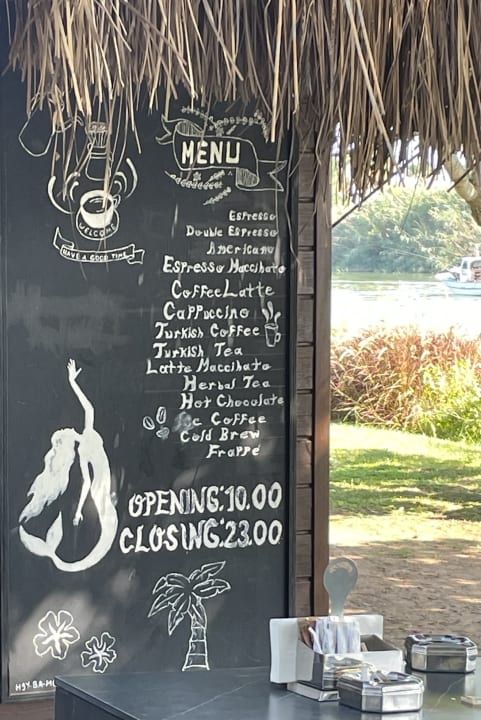 MENU
WELCOME
HAVE A GOOD TIME
Espresso
Double Espresso
Americano
Espresso Macchiato
Coffee Latte
Cappuccino
Turkish Coffee
Turkish Tea
Latte Macchiato
Herbal Tea
Hot Chocolate
Ice Coffee
Cold Brew
Frappé
OPENING:10.00
CLOSING:23.00